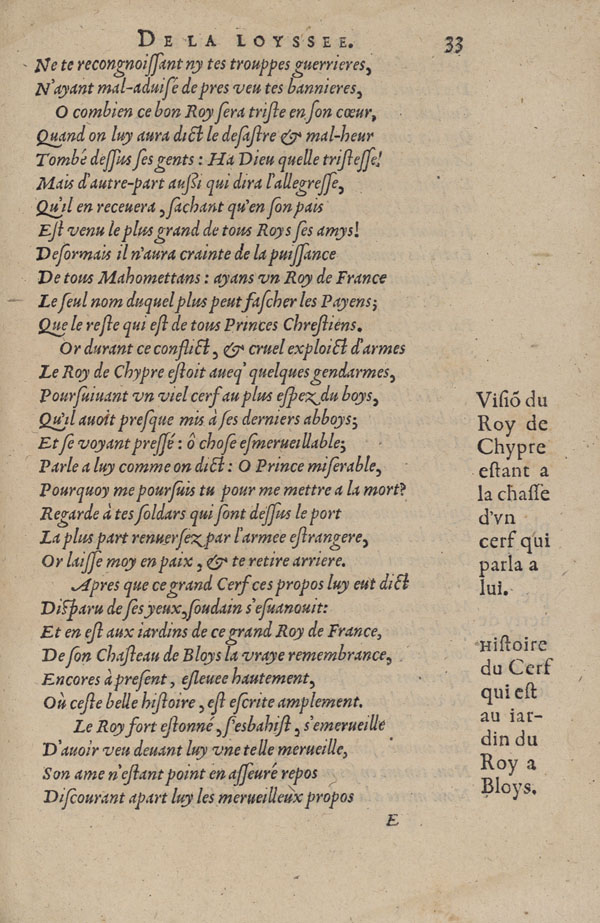 DE LA LOYSSEE. 33
Ne te recongnoiſſant ny tes trouppes guerrieres,
N'ayant mal-aduiſé de pres veu tes bannieres,
O combien ce bon Roy ſera triſte en ſon cœur,
Quand on luy aura dict le deſaſtre & mal-heur
Tombé deſſus ſes gents : Ha Dieu quelle triſteſſe!
Mais d'autre-part auſsi qui dira l'allegreſſe,
Qu'il en receuera, ſachant qu'en ſon pais
Eſt venu le plus grand de tous Roys ſes amys!
Deſormais il n'aura crainte de la puiſſance
De tous Mahomettans : ayans vn Roy de France
Le ſeul nom duquel plus peut faſcher les Payens;
Que le reſte qui eſt de tous Princes Chreſtiens.
Or durant ce conflict, & cruel exploict d'armes
Le Roy de Chypre eſtoit aueq' quelques gendarmes,
Pourſuiuant vn viel cerf au plus eſpez du boys,
Qu'il auoit preſque mis à ſes derniers abboys;
Et ſe voyant preſſé : ô choſe eſmerueillable;
Parle a luy comme on dict : O Prince miſerable,
Pourquoy me pourſuis tu pour me mettre a la mort?
Regarde à tes ſoldars qui ſont deſſus le port
La plus part renuerſez par l'armee eſtrangere,
Or laiſſe moy en paix, & te retire arriere.
Apres que ce grand Cerf ces propos luy eut dict
Diſparu de ſes yeux, ſoudain s'eſuanouit:
Et en eſt aux iardins de ce grand Roy de France,
De ſon Chaſteau de Bloys la vraye remembrance,
Encores à preſent, eſleuee hautement,
Où ceſte belle hiſtoire, eſt eſcrite amplement.
Le Roy fort eſtonné, ſ'esbahiſt, s'emerueille
D'auoir veu deuant luy vne telle merueille,
Son ame n'eſtant point en aſſeuré repos
Diſcourant apart luy les merueilleux propos
E
Viſiõ du
Roy de
Chypre
eſtant a
la chaſſe
d'vn
cerf qui
parla a
lui.
Hiſtoire
du Cerf
qui eſt
au iar-
din du
Roy a
Bloys.